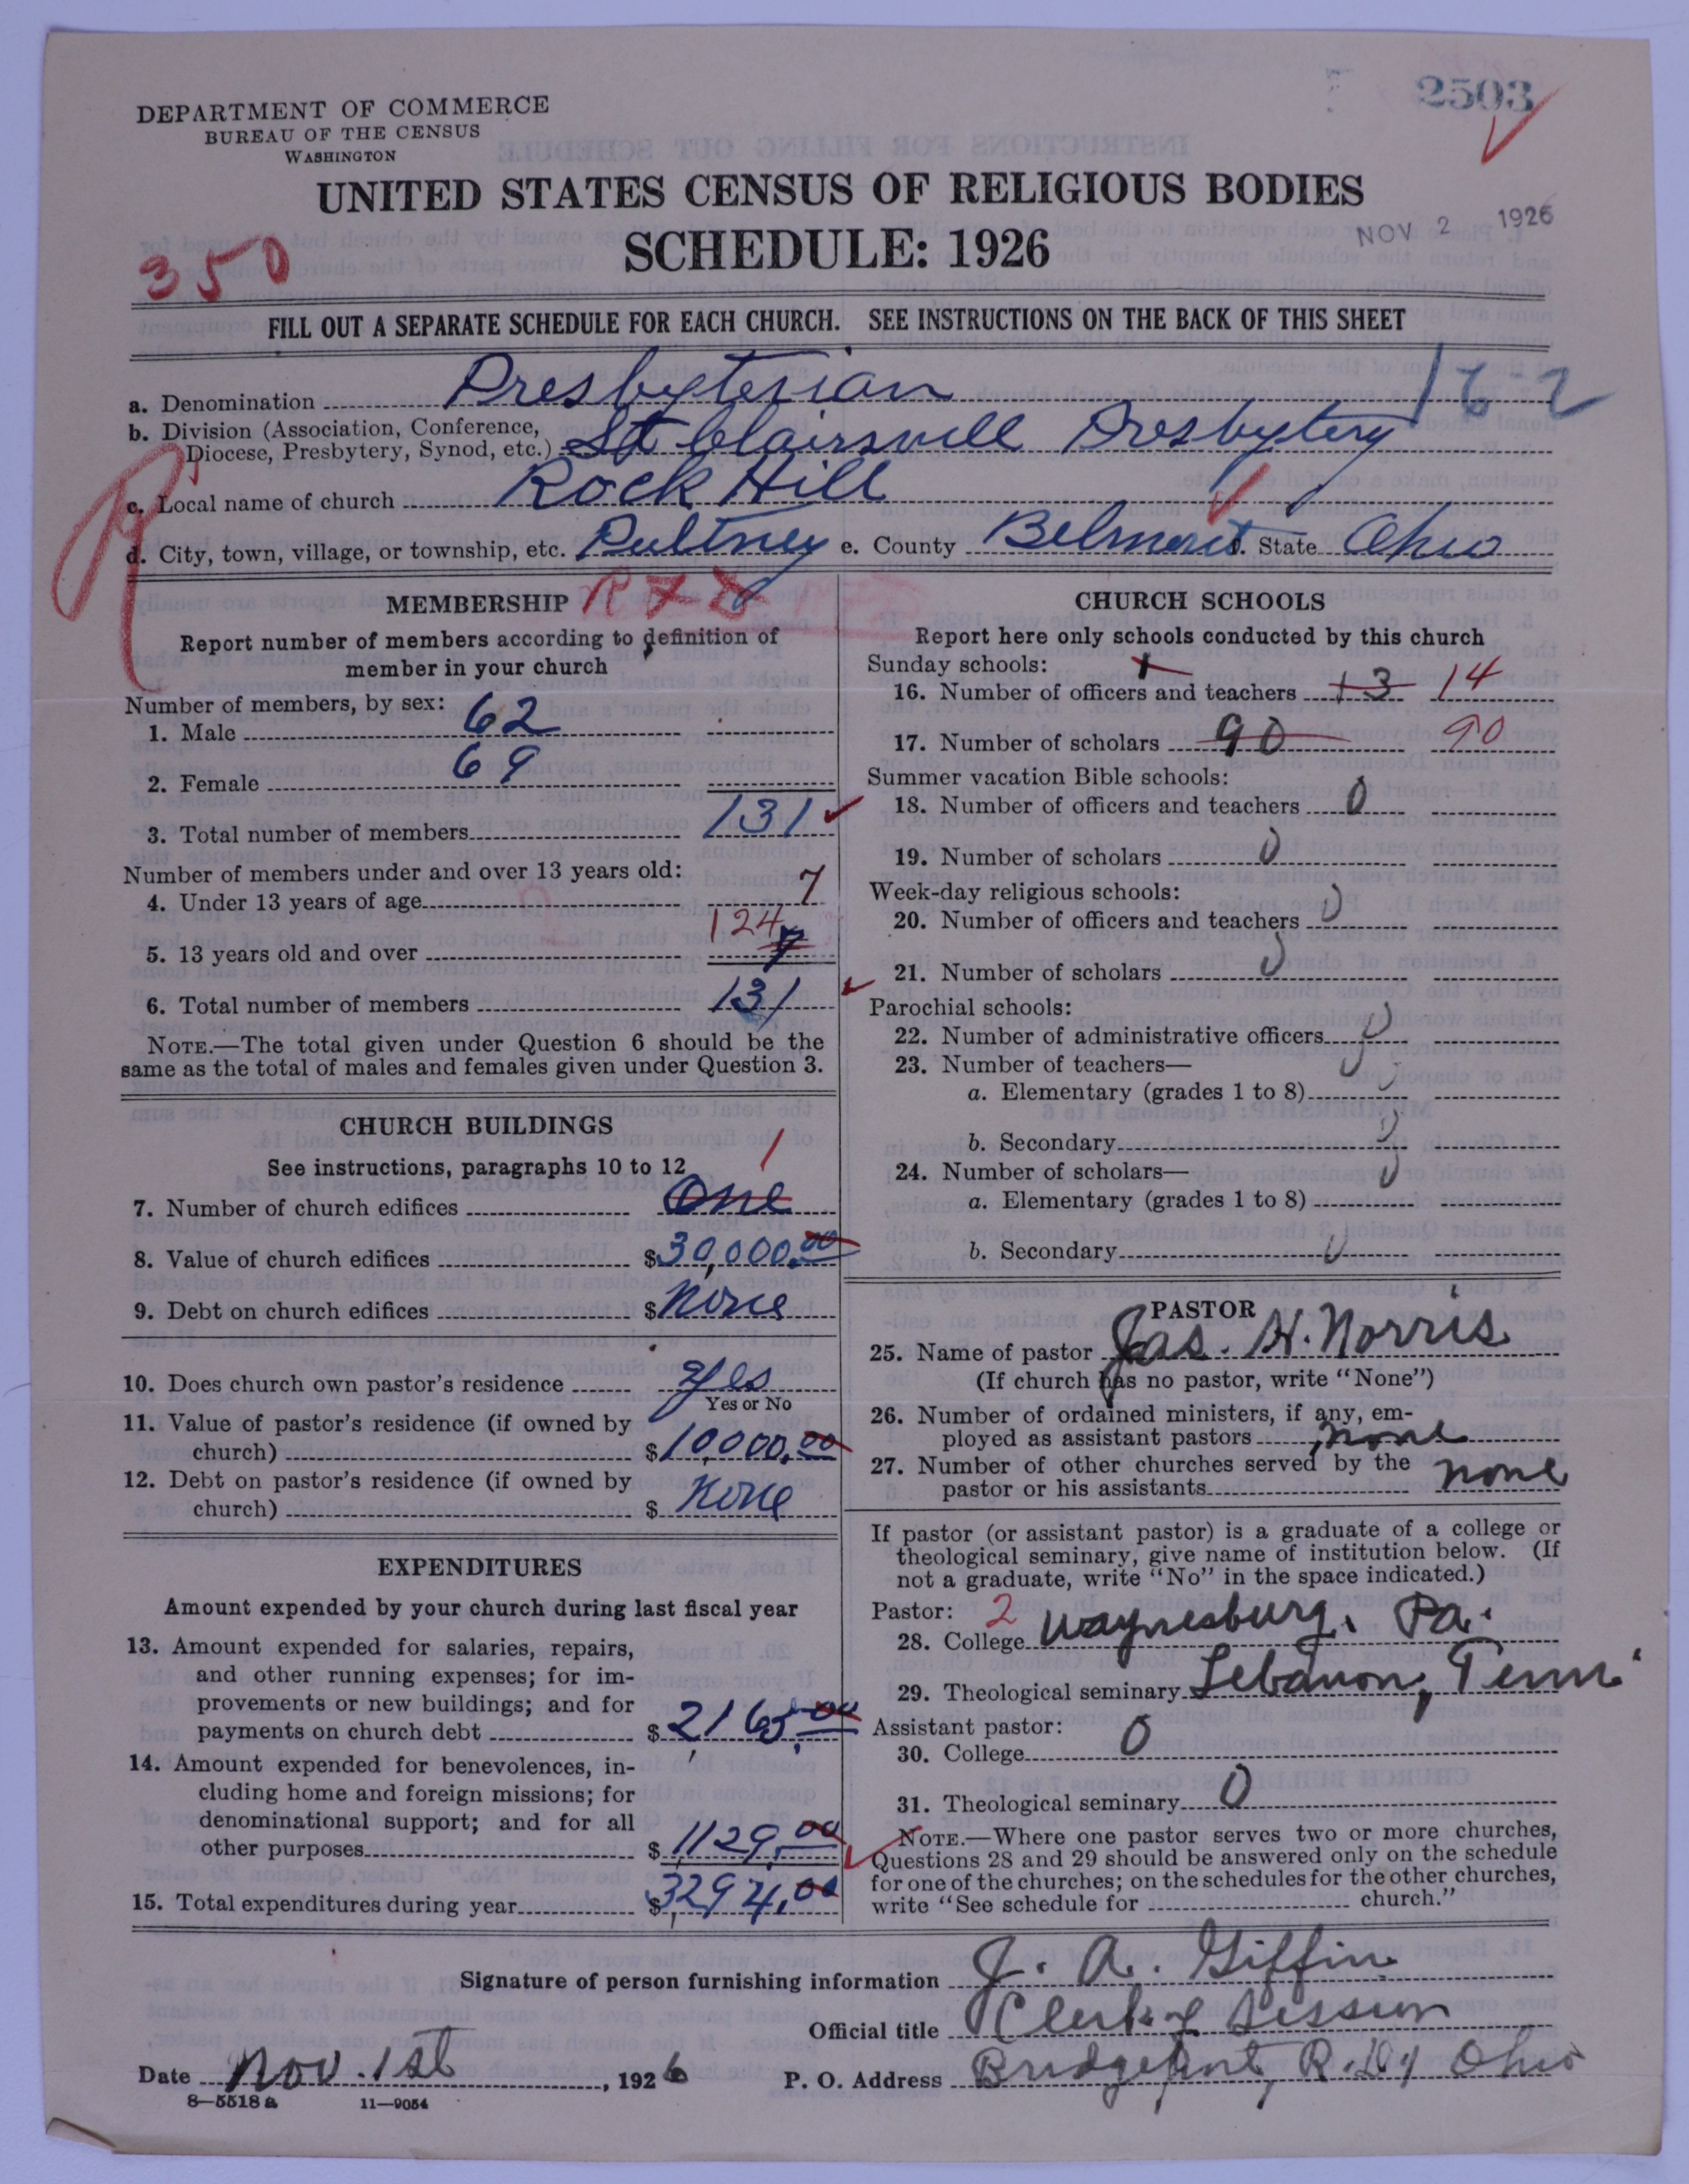 2503
DEPARTMENT OF COMMERCE
BUREAU OF THE CENSUS
WASHINGTON
UNITED STATES CENSUS OF RELIGIOUS BODIES
NOV 2 1926
SCHEDULE: 1926
350
FILL OUT A SEPARATE SCHEDULE FOR EACH CHURCH. SEE INSTRUCTIONS ON THE BACK OF THIS SHEET
a. Denomination Presbyterian 16-2
b. Division (Association, Conference,
Diocese, Presbytery, Synod, etc.) St Clairsvill Presbytery
R
c. Local name of church Rock Hill
d. City, town, village, or township, etc. Pultney e. County Belmont f. State Ohio
MEMBERSHIP
Report number of members according to definition of
member in your church
Number of members, by sex:
1. Male 62
2. Female 69
3. Total number of members 131
Number of members under and over 13 years old:
4. Under 13 years of age 7
5. 13 years old and over 124 7
6. Total number of members 131
NOTE.—The total given under Question 6 should be the
same as the total of males and females given under Question 3.
CHURCH BUILDINGS
See instructions, paragraphs 10 to 12
1
7. Number of church edifices One
8. Value of church edifices $30,000.00
9. Debt on church edifices $None
10. Does church own pastor's residence Yes
Yes or No
11. Value of pastor's residence (if owned by
church) $10000.00
12. Debt on pastor's residence (if owned by
church) $ None
EXPENDITURES
Amount expended by your church during last fiscal year
13. Amount expended for salaries, repairs,
and other running expenses; for im-
provements or new buildings; and for
payments on church debt $2,165.00
14. Amount expended for benevolences, in-
cluding home and foreign missions; for
denominational support; and for all
other purposes $1129.00
15. Total expenditures during year $3294.00
CHURCH SCHOOLS
Report here only schools conducted by this church
Sunday schools: 1
16. Number of officers and teachers 13 14
17. Number of scholars 90 90
Summer vacation Bible schools:
18. Number of officers and teachers 0
19. Number of scholars 0
Week-day religious schools:
20. Number of officers and teachers 0
21. Number of scholars 0
Parochial schools:
22. Number of administrative officers 0
23. Number of teachers— 0
a. Elementary (grades 1 to 8) 0
b. Secondary 0
24. Number of scholars— 0
a. Elementary (grades 1 to 8)
b. Secondary 0
PASTOR
25. Name of pastor Jas. H. Norris
(If church has no pastor, write "None")
26. Number of ordained ministers, if any, em-
ployed as assistant pastors none
27. Number of other churches served by the
pastor or his assistants none
If pastor (or assistant pastor) is a graduate of a college or
theological seminary, give name of institution below. (If
not a graduate, write "No" in the space indicated.)
Pastor: 2
28. College Waynesburg. Pa.
29. Theological seminary Lebanon, Tenn.
Assistant pastor:
30. College 0
31. Theological seminary 0
NOTE.—Where one pastor serves two or more churches,
Questions 28 and 29 should be answered only on the schedule
for one of the churches; on the schedules for the other churches,
write "See schedule for church."
Signature of person furnishing information J. A. Giffin
Official title Clerk of Session
Date Nov. 1st, 1926 P. O. Address Bridgeport, Ohio
8—5518a 11—9054